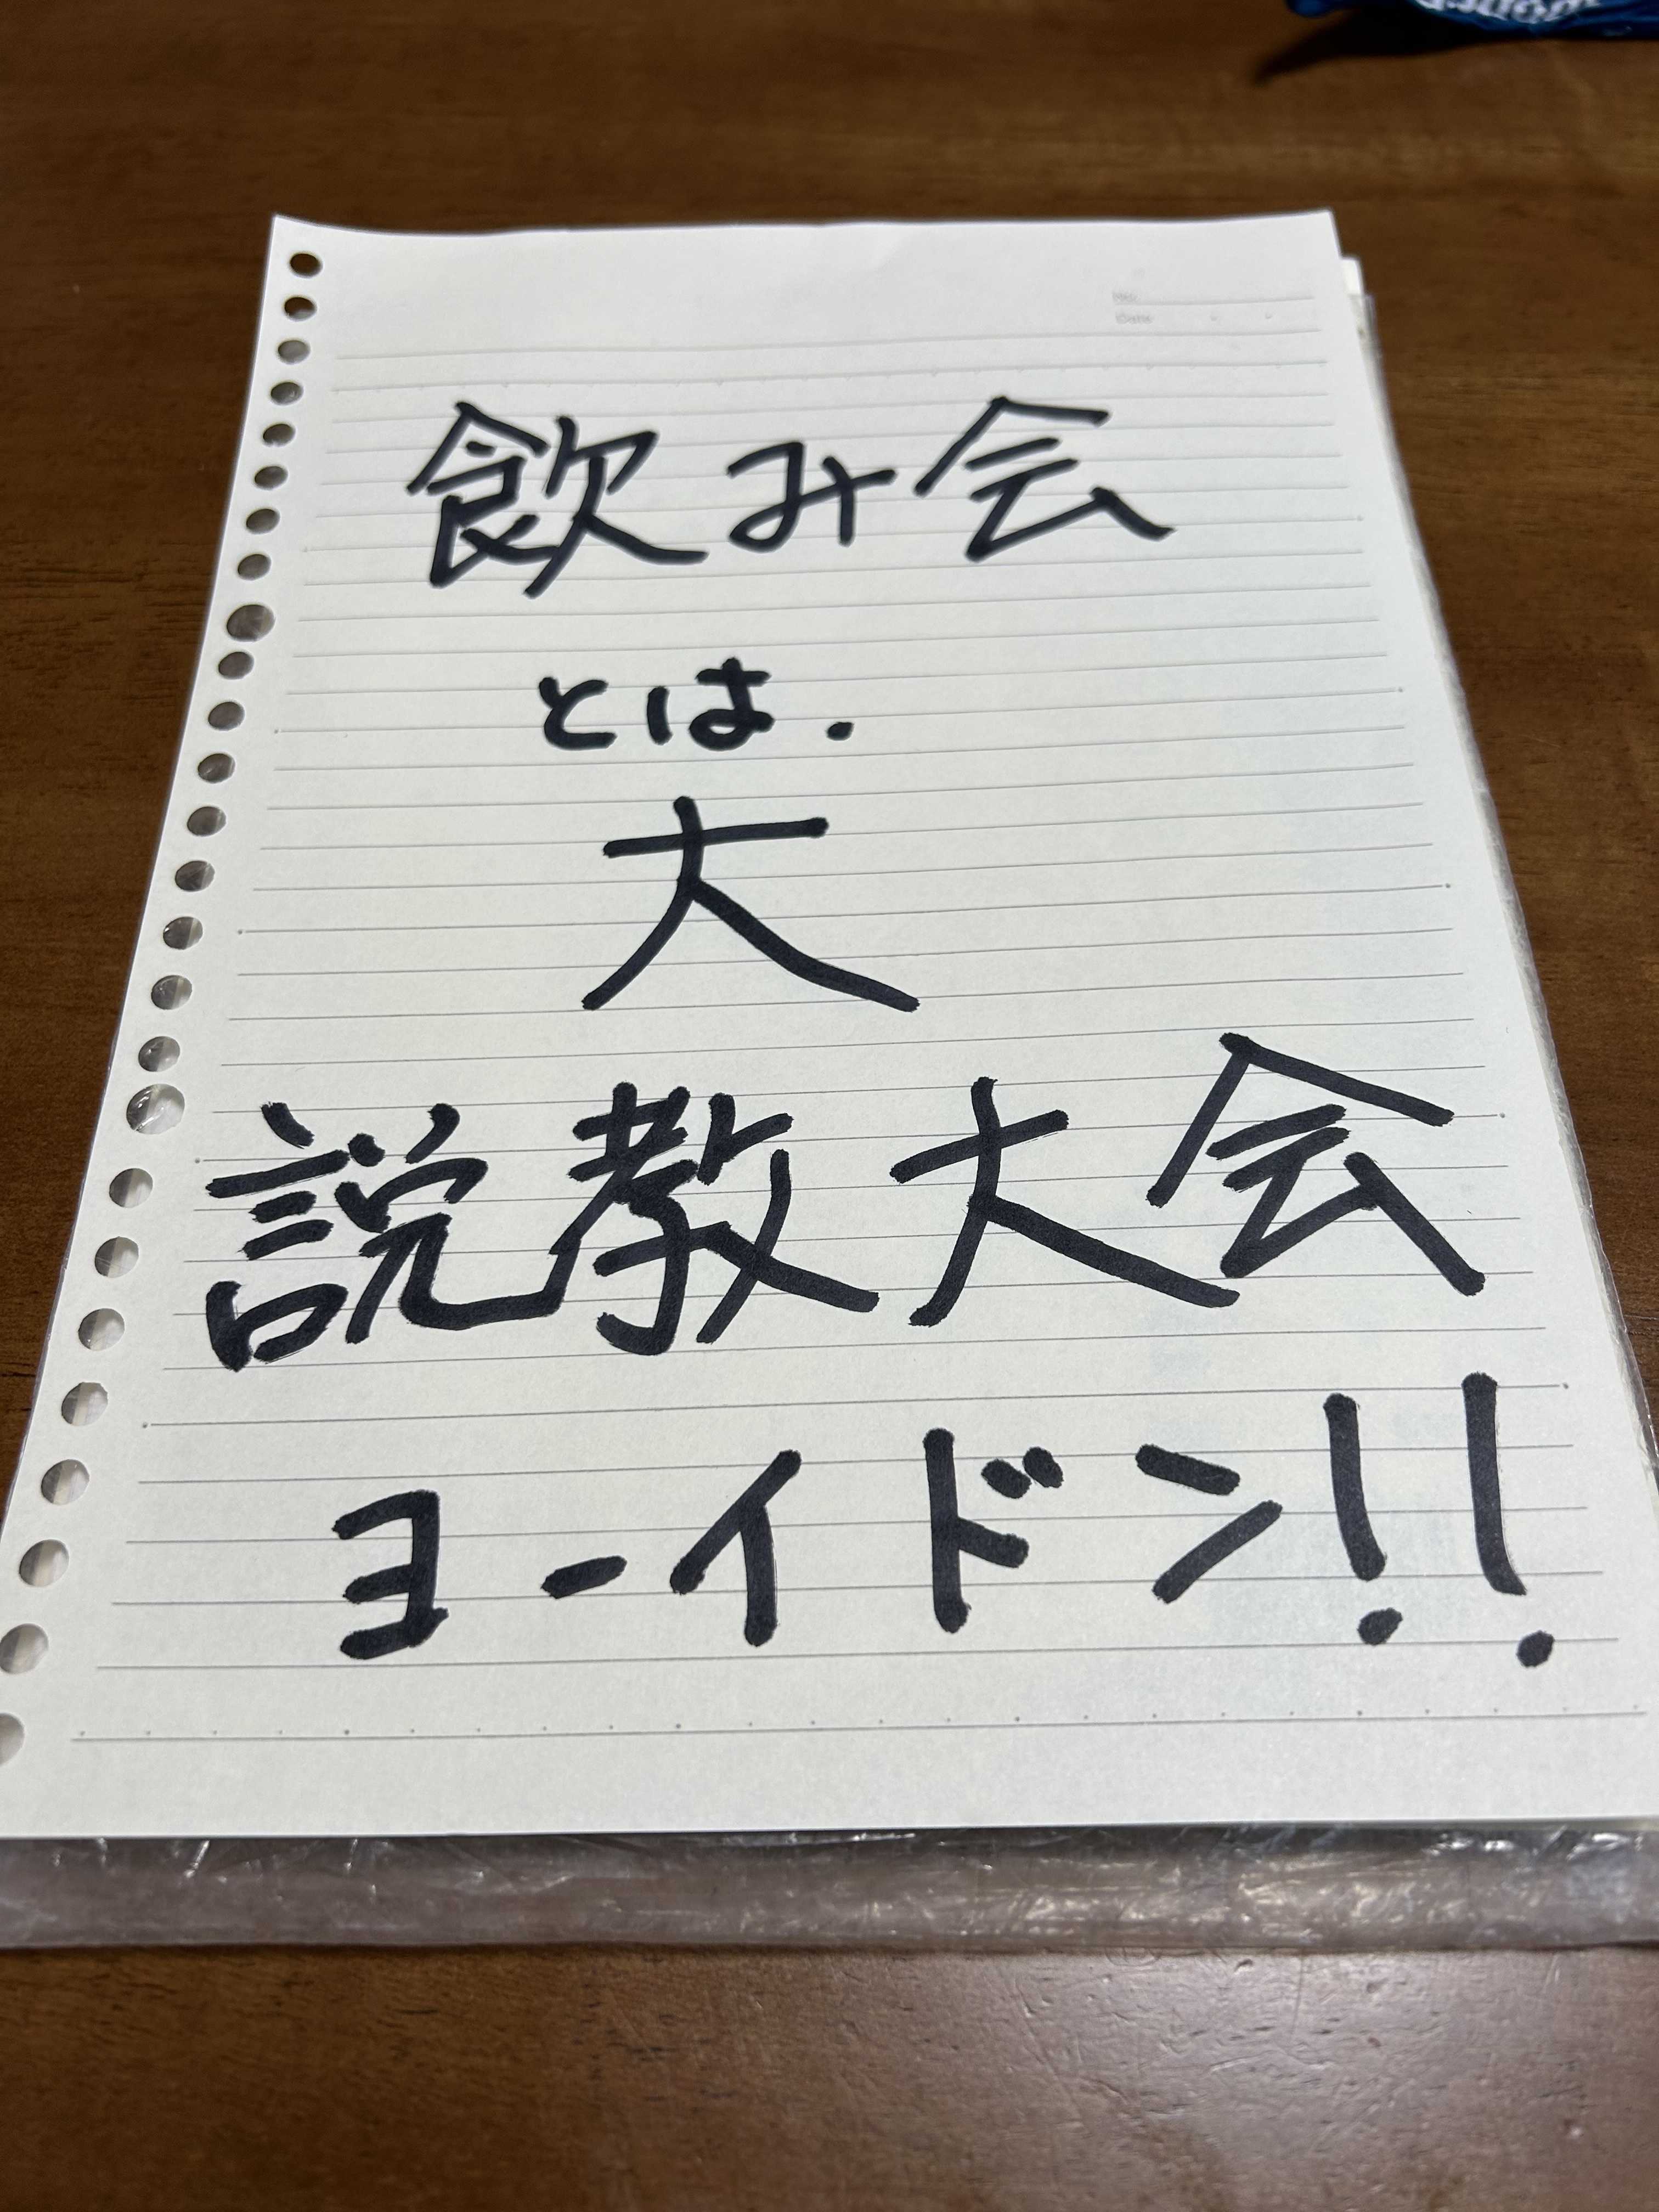 No.
Date
飲み会
とは.
大
説教大会
ヨーイドン!!